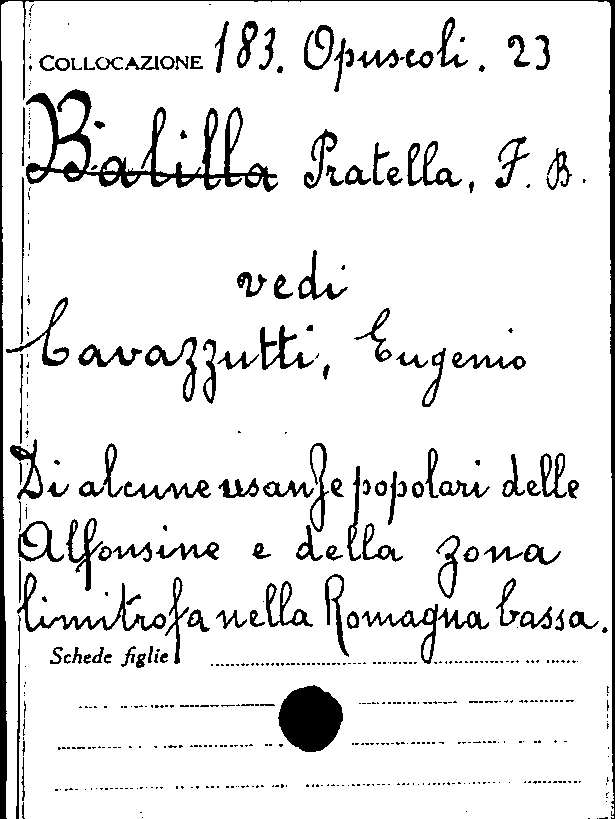 COLLOCAZIONE 183. Opuscoli. 23
Balilla Pratella, F. B.
vedi
Cavazzutti, Eugenio
Di alcune usanze popolari delle
Alfonsine e della zona
limitrofa nella Romagna bassa.
Schede figlie